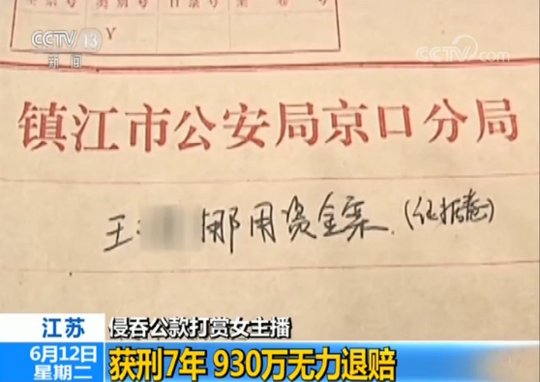 CCTV 13
新闻
CCTV.com
Y
镇江市公安局京口分局
王: 挪用资金案
江苏
侵吞公款打赏女主播
6月12日
星期二
获刑7年 930万无力退赔